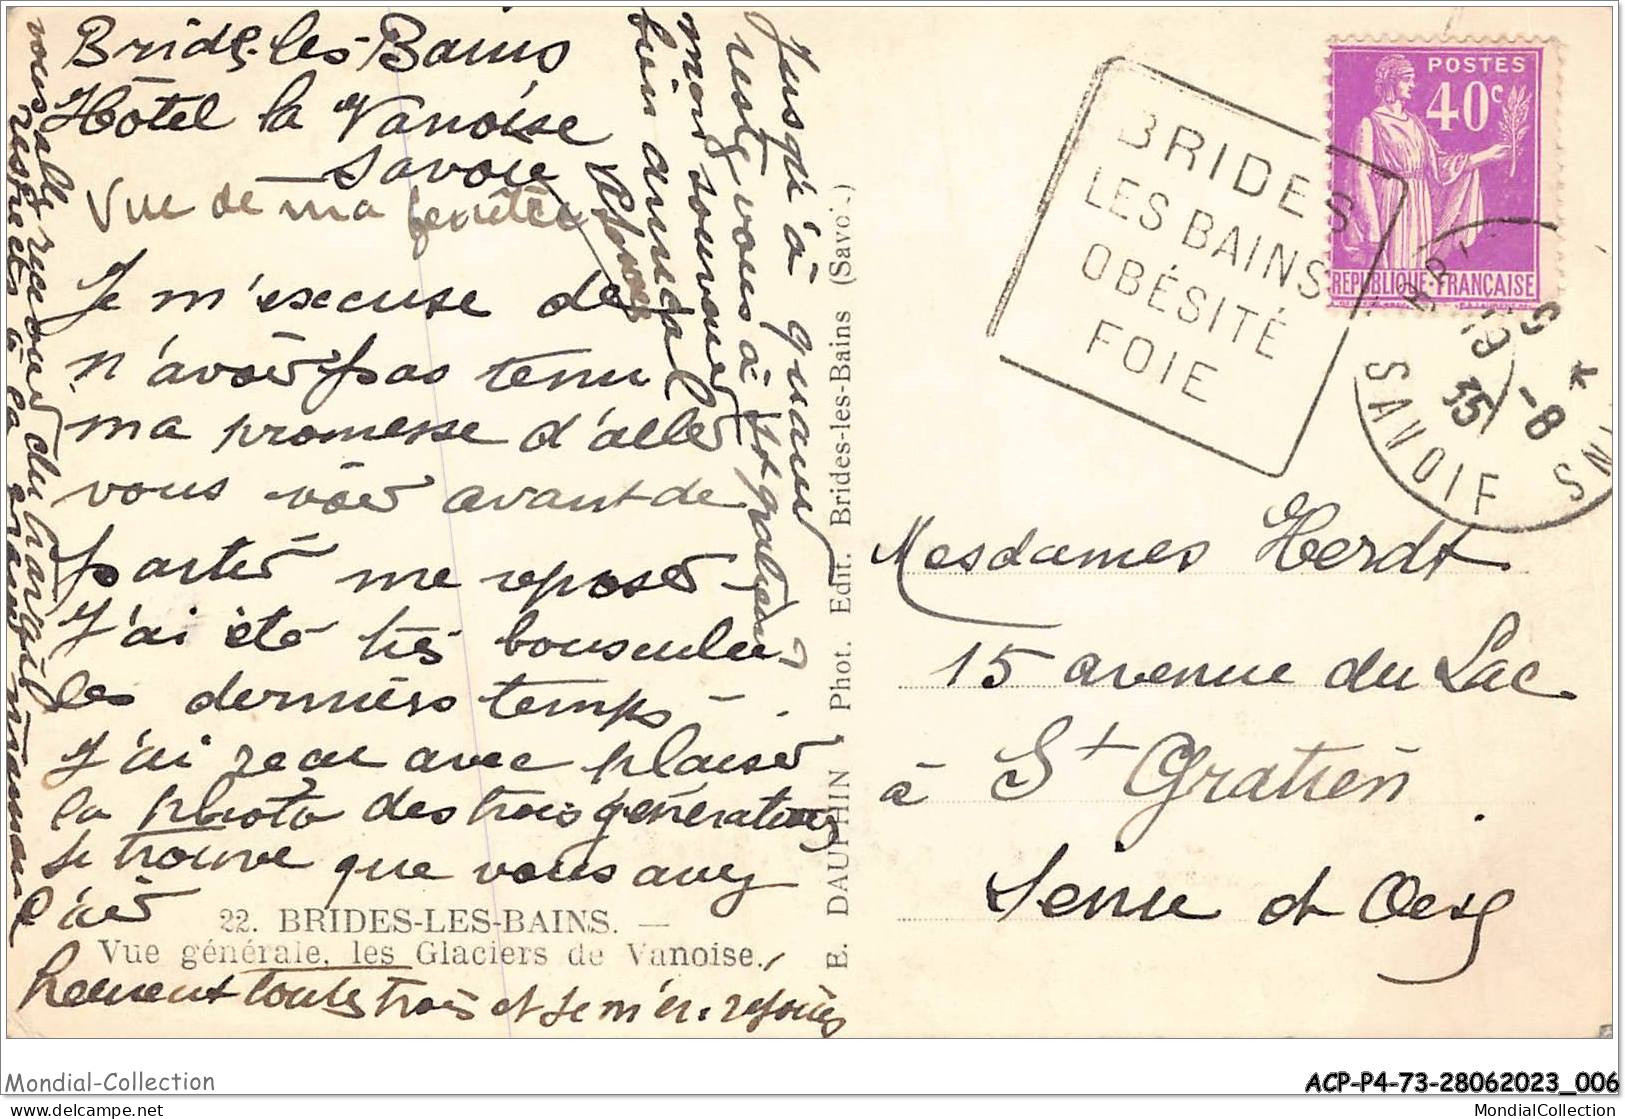 Brides-les-Bains
Hôtel la Vanoise
Savoie
Vue de ma fenêtre
Je m'excuse de
n'avoir pas tenu
ma promesse d'aller
vous voir avant de
partir me reposer
J'ai été très bousculée
les derniers temps -
J'ai reçu avec plaisir
la photo des trois générations
Je trouve que vous avez
l'air
heureuses toutes trois et je m'en réjouis
Jusqu'à quand
restez vous à St gratien ?
mon souvenir
bien amical
vous allez recevoir du
respects à la grand maman
22. BRIDES-LES-BAINS. —
Vue générale, les Glaciers de Vanoise.
E. DAUPHIN, Phot. Edit. Brides-les-Bains (Savo'.)
BRIDES
LES BAINS
OBÉSITÉ
FOIE
POSTES
40c
REPUBLIQUE·FRANÇAISE
19
-8
35
SAVOIE
Mesdames Herdt
15 avenue du Lac
à St Gratien
Seine et Oise
Mondial-Collection
ACP-P4-73-28062023_006
www.delcampe.net
MondialCollection